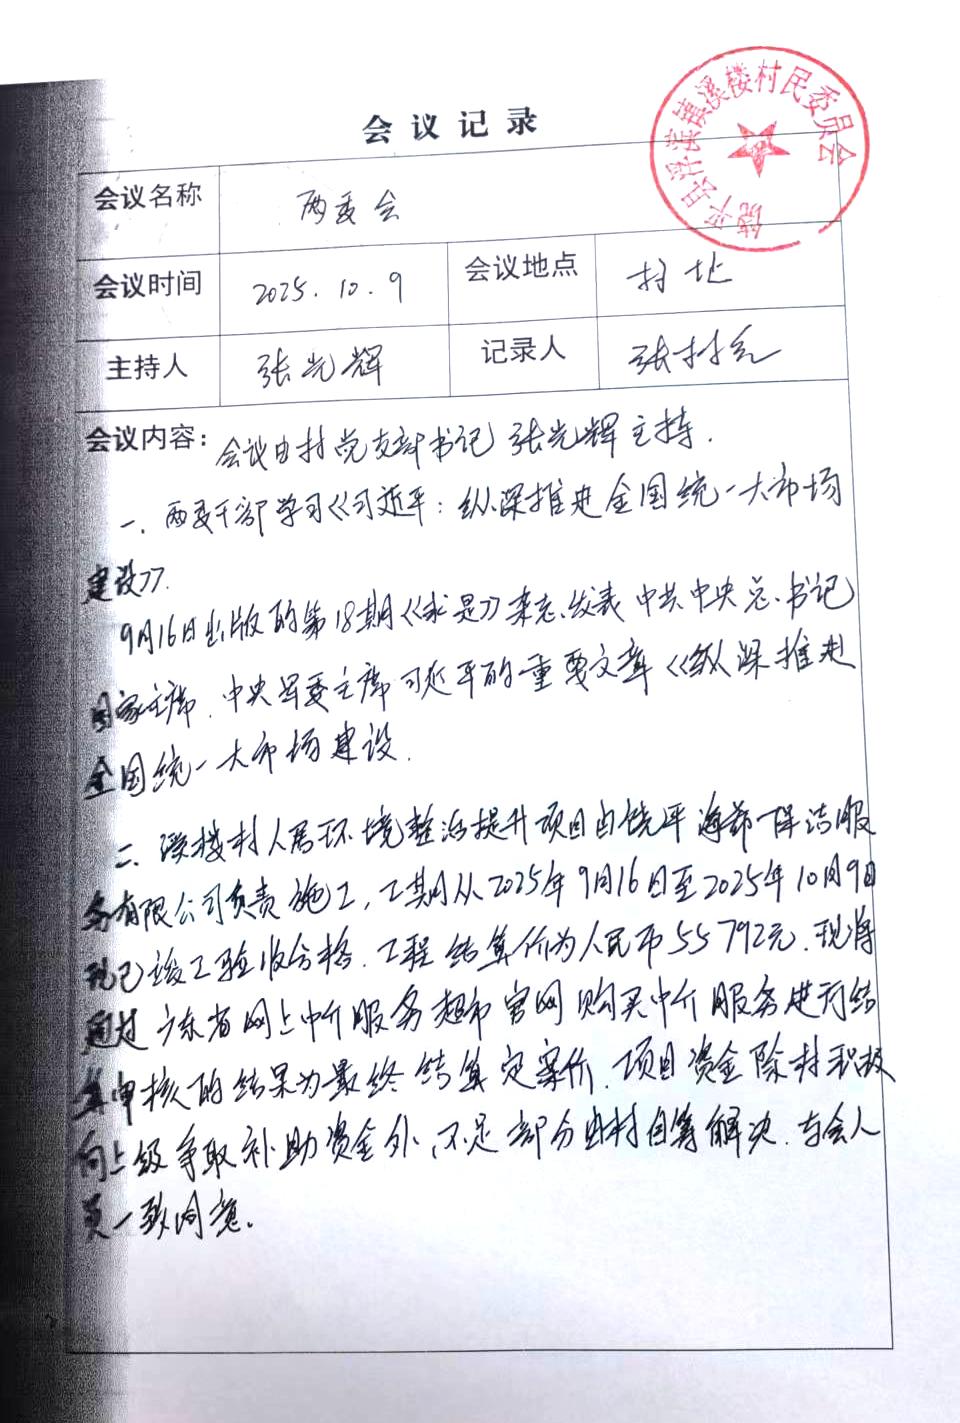 会议记录
饶平县浮滨镇溪楼村民委员会
会议名称 两委会
会议时间 2025.10.9 会议地点 村址
主持人 张光辉 记录人 张村
会议内容：会议由村党支部书记张光辉主持.
一、两委干部学习《习近平：纵深推进全国统一大市场
建设》.
9月16日出版的第18期《求是》杂志发表中共中央总书记
国家主席、中央军委主席习近平的重要文章《纵深推进
全国统一大市场建设.
二、溪楼村人居环境整治提升项目由饶平海 洁服
务有限公司负责施工，工期从2025年9月16日至2025年10月9日
现已竣工验收合格、工程结算价为人民币55792元.现将
通过广东省网上中介服务超市官网购买中介服务进行结
算审核的结果为最终结算定案价.项目资金除村积极
向上级争取补助资金外、不足部分由村自筹解决.与会人
员一致同意.